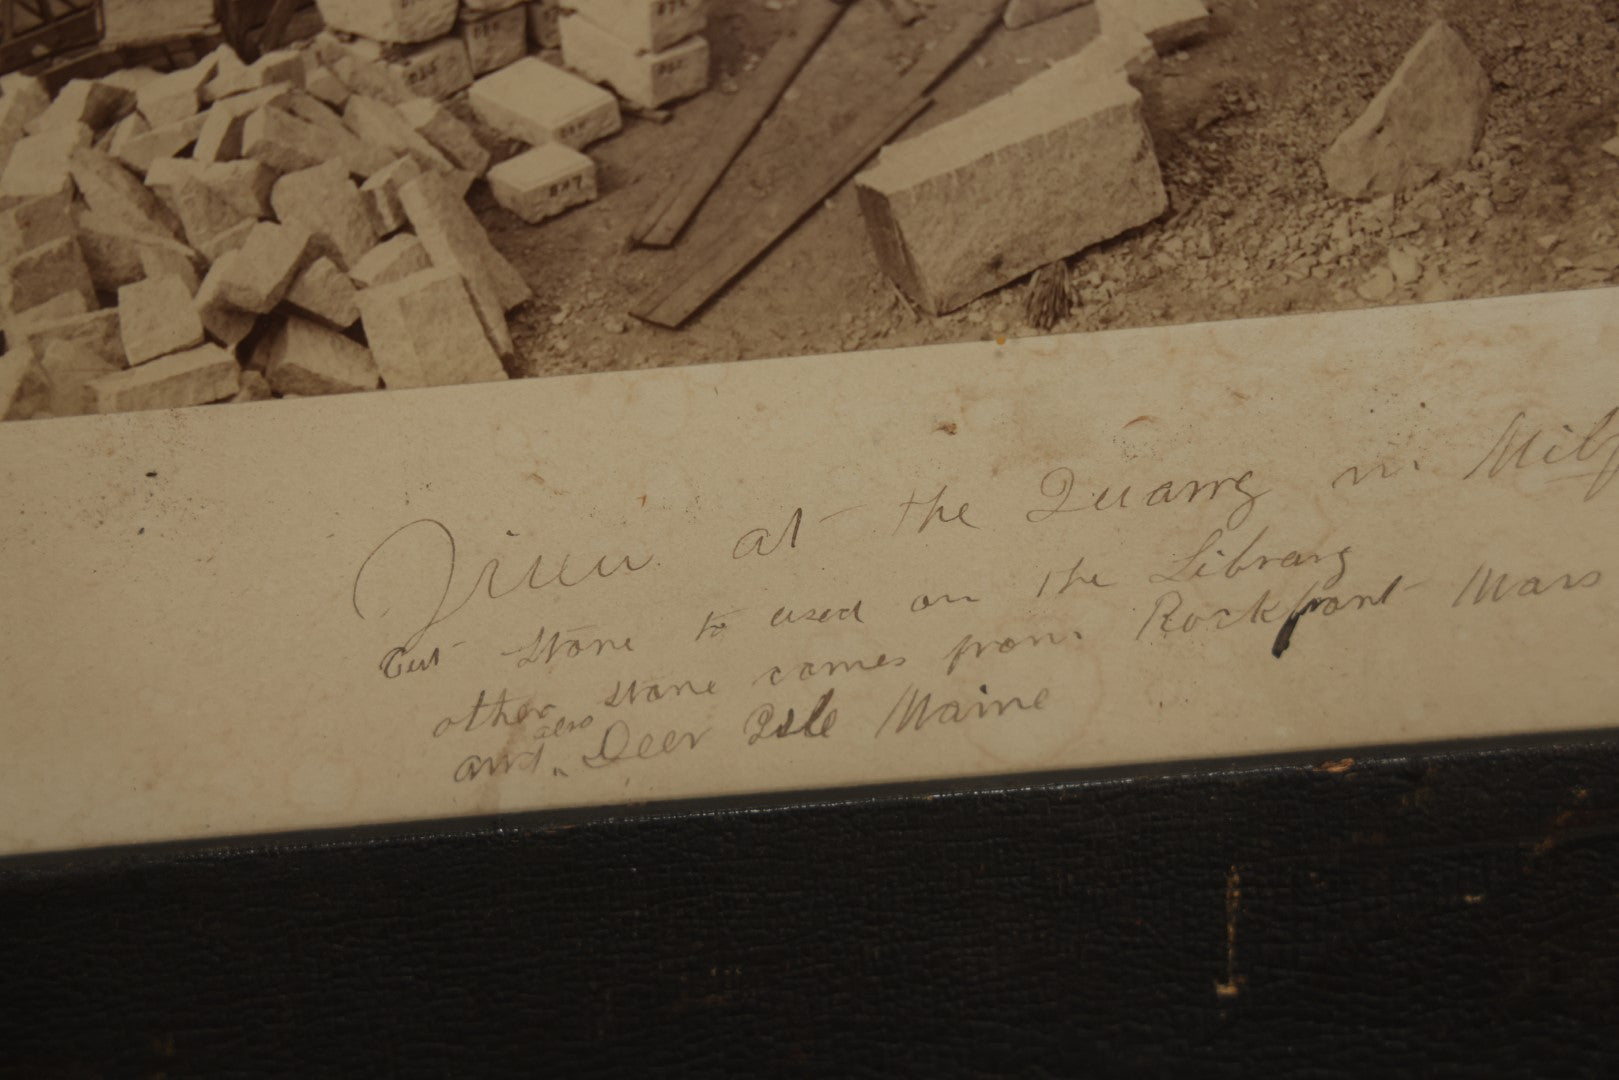 View at the Quarry in Milf
Cut Stone to used on the Library
other stone comes from Rockport Mass
and also Deer Isle Maine